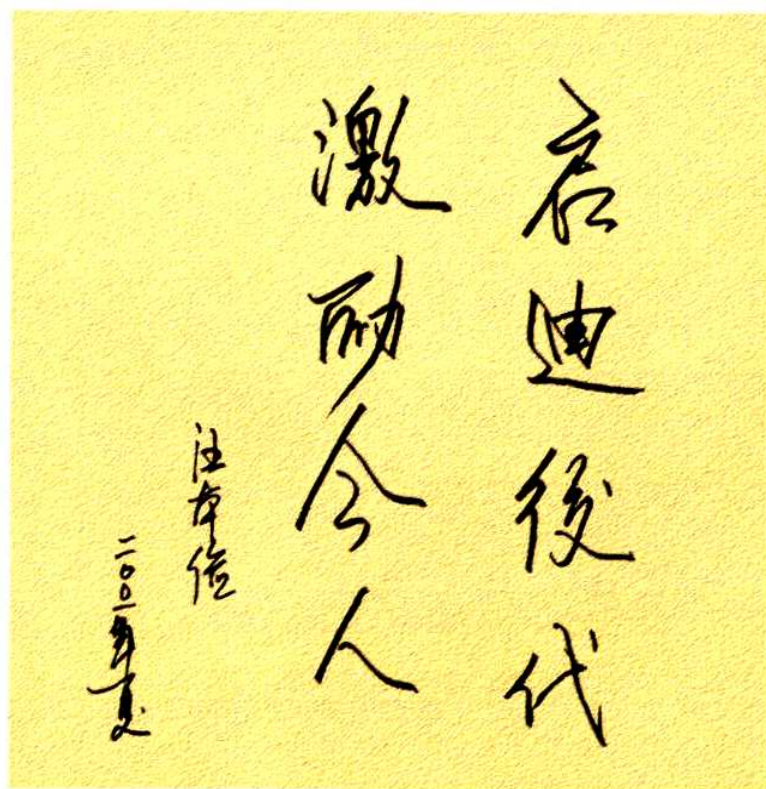 启迪後代
激励今人
汪本
二〇〇一年夏